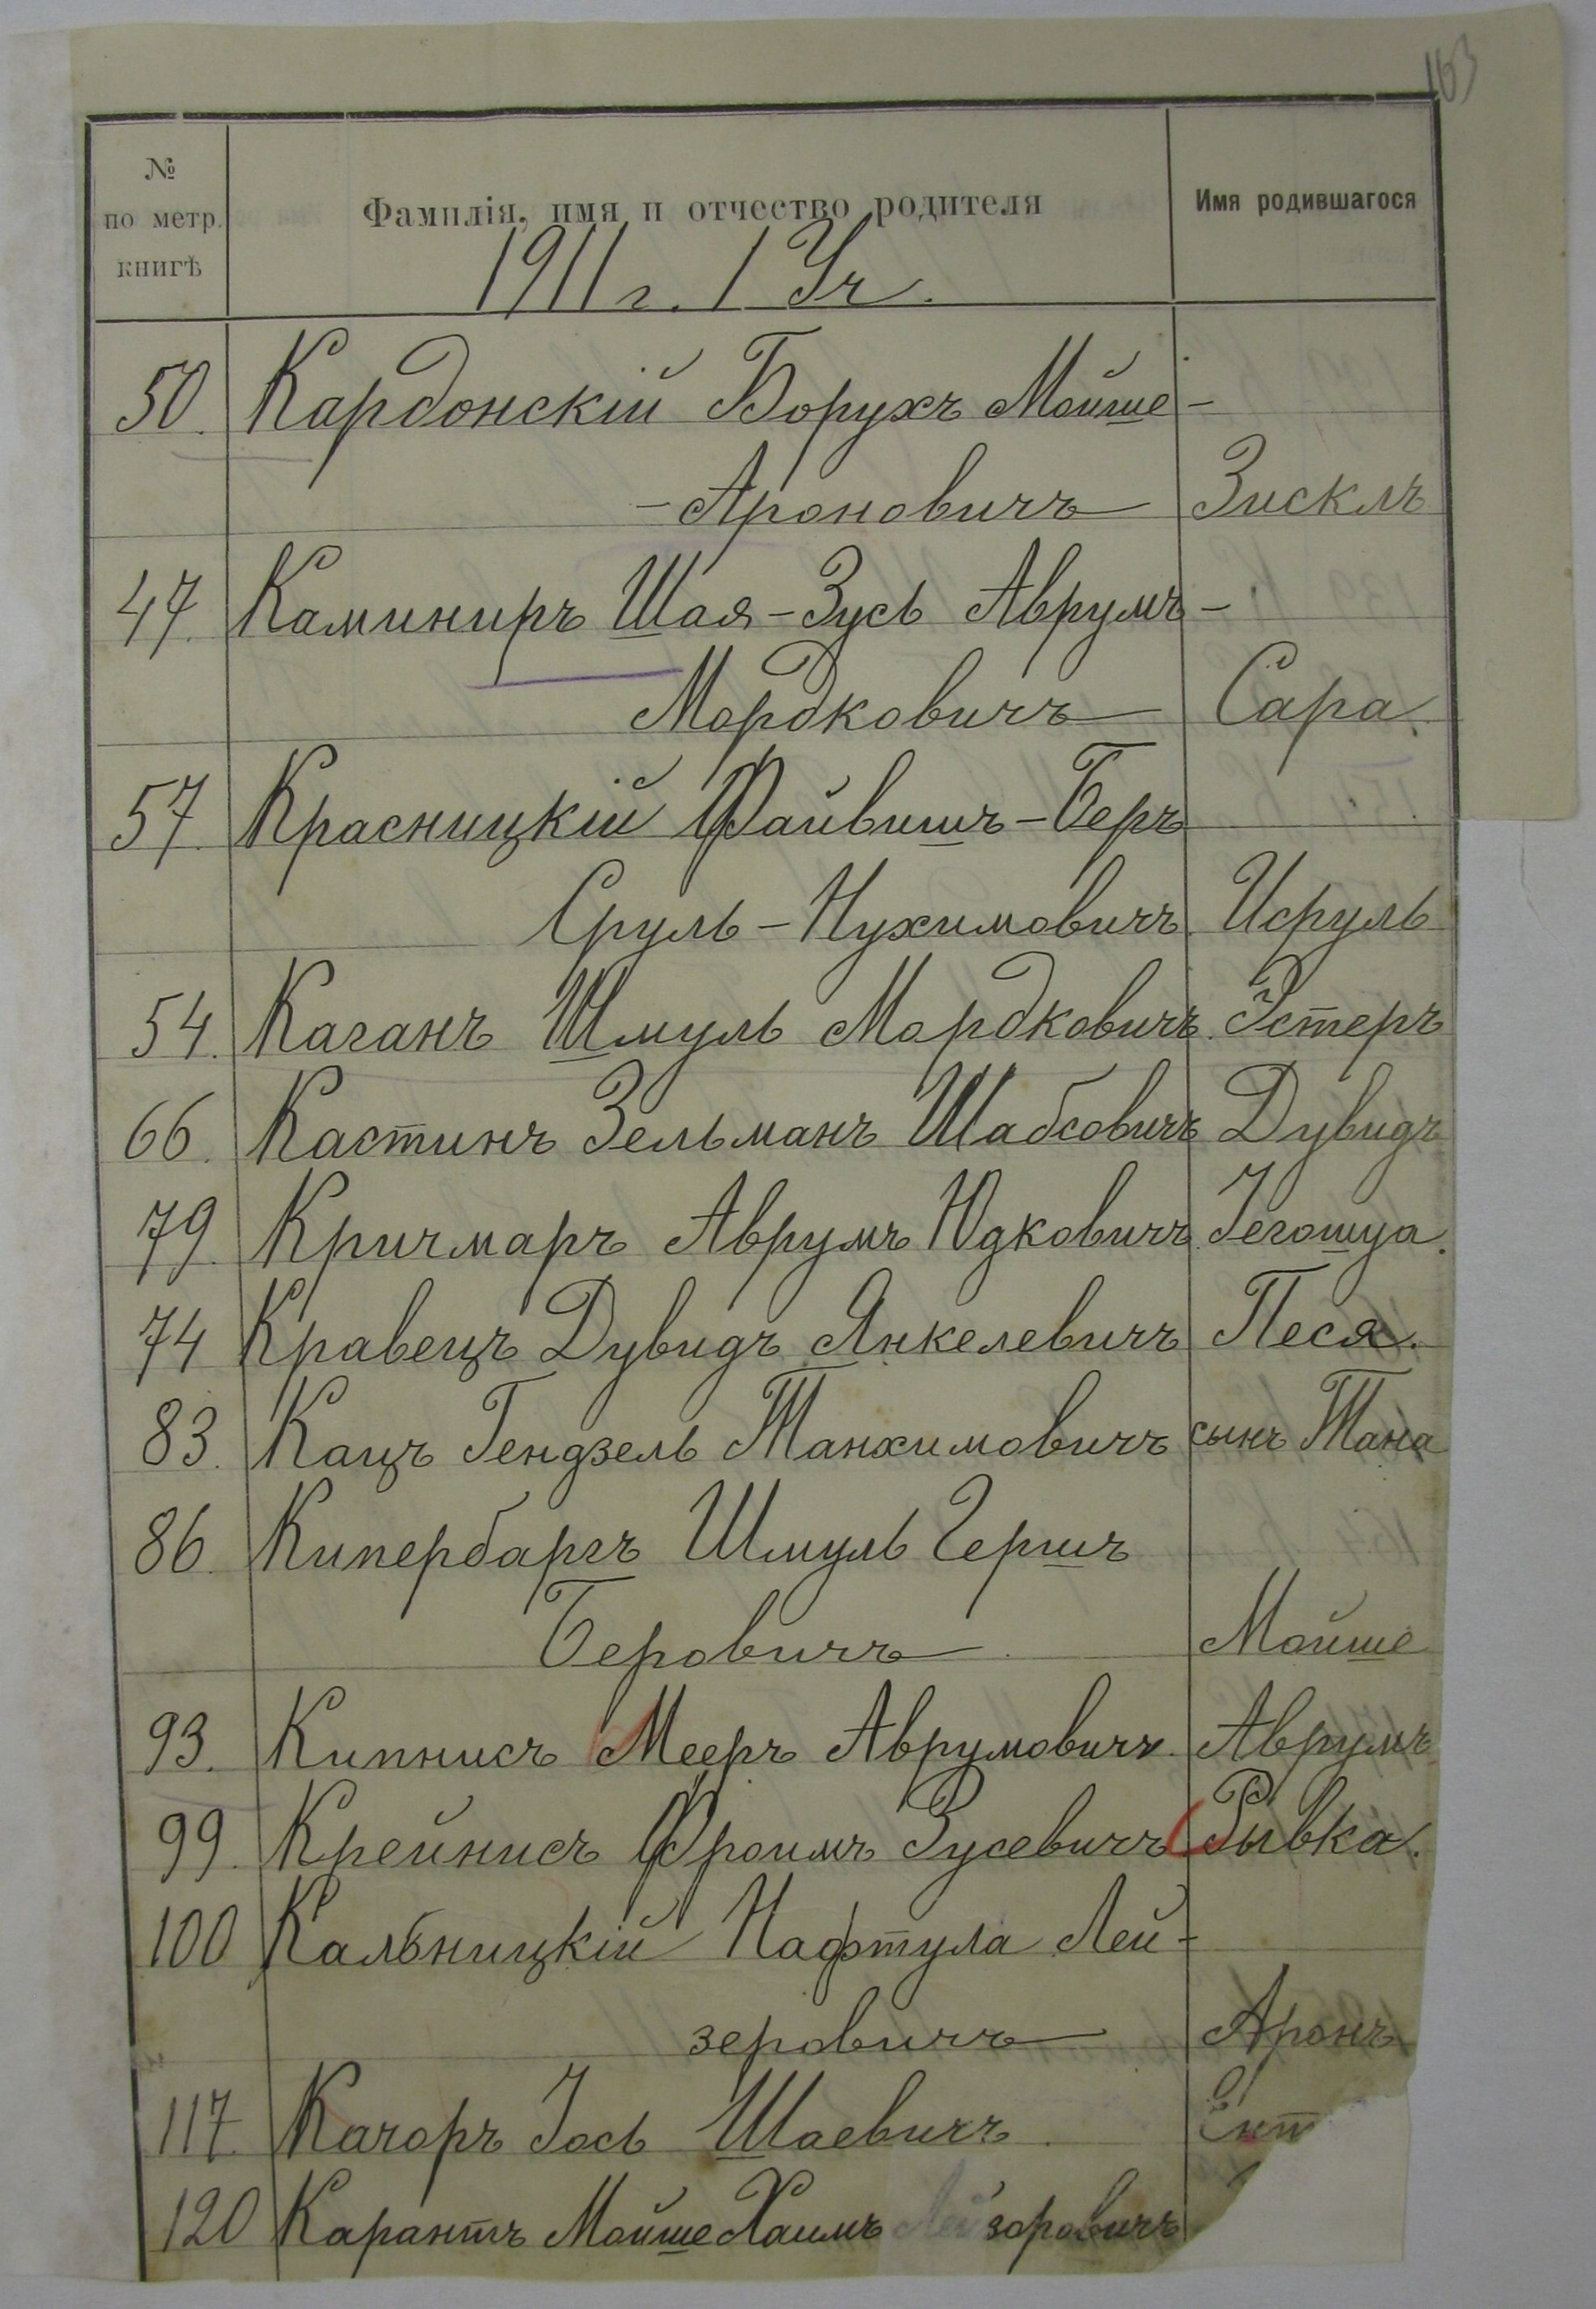 163
№ по метр. книгѣ
Фамилія, имя и отчество родителя
Имя родившагося
1911 г. 1 Уч.
50. Кардонскій Борухъ Мойше-
-Ароновичъ Зисклъ
47. Каминиръ Шая-Зусь Аврумъ-
Мордковичъ Сара.
57. Красницкій Файвишъ-Беръ
Сруль-Нухимовичъ. Исруль
54. Каганъ Шмуль Мордковичъ. Эстеръ
66. Кастинъ Зельманъ Шабсовичъ Дувидъ
79. Кричмаръ Аврумъ Юдковичъ. Іегошуа.
74 Кравецъ Дувидъ Янкелевичъ Песя.
83. Кацъ Гендзель Танхимовичъ сынъ Тана
86. Кипербаргъ Шмуль Гершъ
Беровичъ Мойше
93. Кипнисъ Мееръ Аврумовичъ. Аврумъ
99. Крейнисъ Фроимъ Зусевичъ Рывка.
100 Кальницкій Нафтула Лей-
зеровичъ Аронъ
117. Качоръ Іось Шаевичъ.
120 Карантъ Мойше Хаимъ Лейзоровичъ